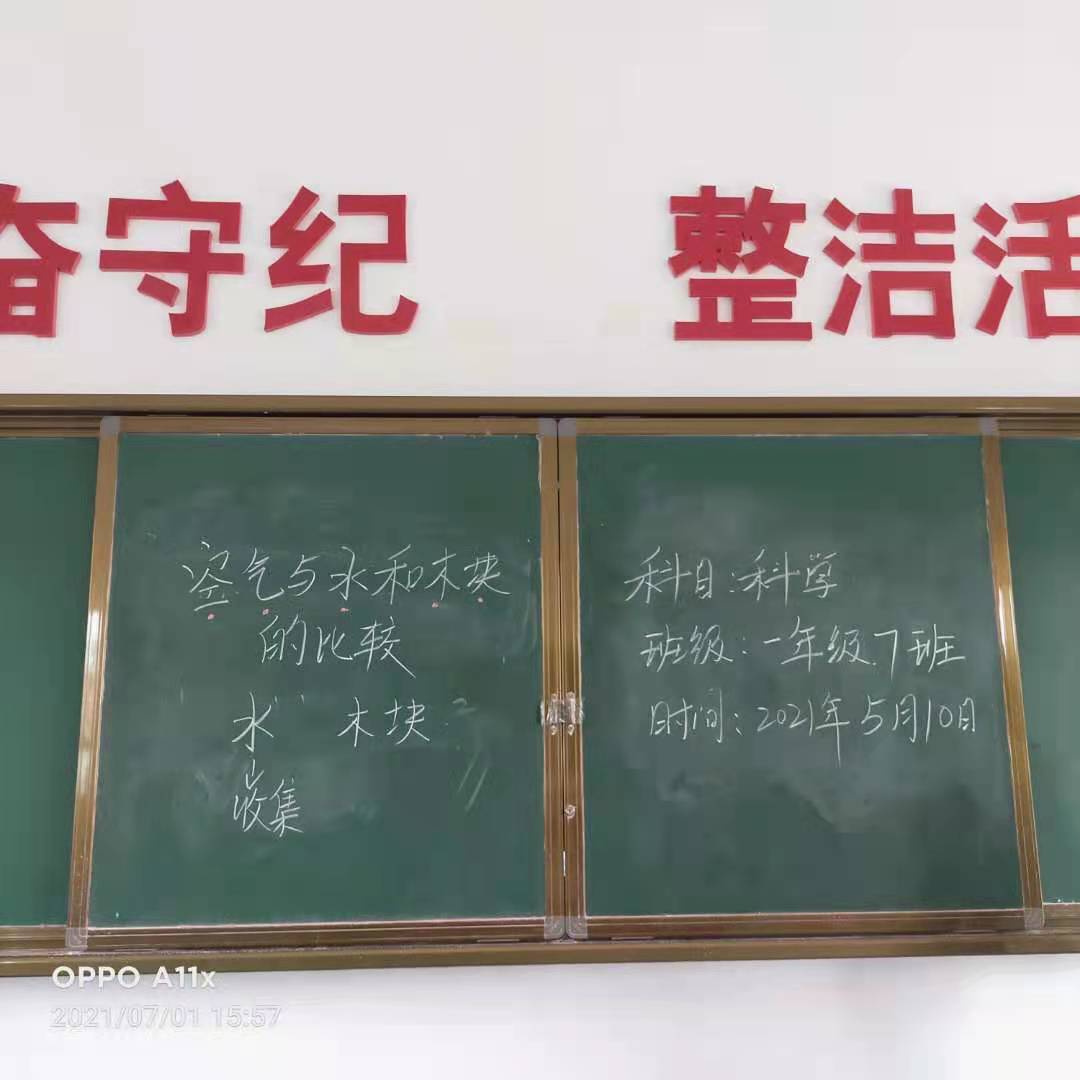 奋守纪 整洁活
空气与水和木块
的比较
水 木块
收集
科目:科学
班级:一年级7班
时间:2021年5月10日
OPPO A11x
2021/07/01 15:57